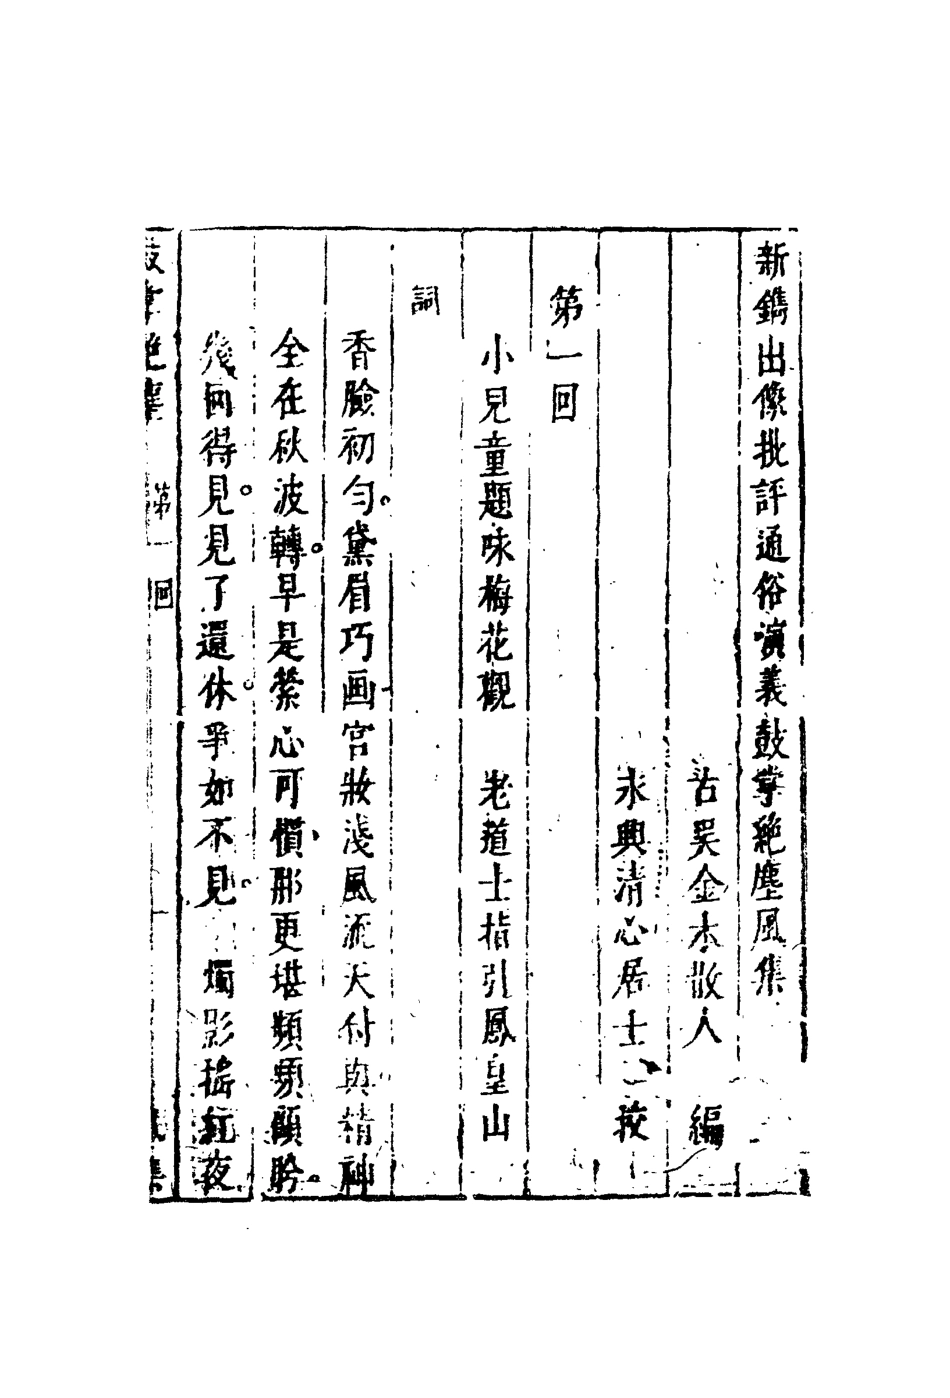 新鐫出像批評通俗演義鼓掌絕塵風集
古吳金木散人　編
永興清心居士　挍
第一回
小兒童題咏梅花觀　老道士指引鳳皇山
詞
香臉初勻。黛眉巧画宮妝淺風流天付與精神
全在秋波轉。早是縈心可慣、那更堪頻頻顧盻。
幾回得見。見了還休。爭如不見。燭影搖紅夜
鼓掌絕塵　第一回　一　風集